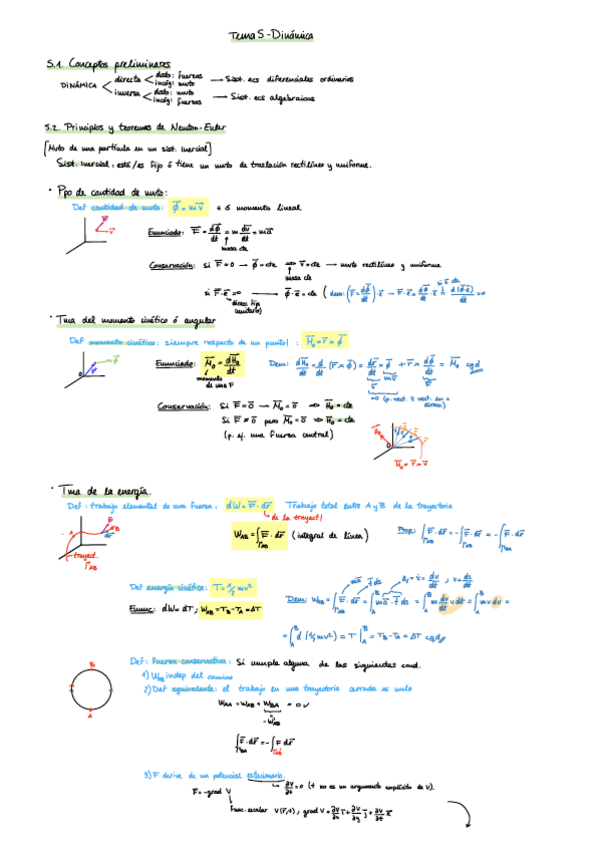 Tema 5 - Dinámica
5.1. Conceptos preliminares
DINÁMICA
directa dato: fuerzas
incóg: mvto → Sist. ecs diferenciales ordinarias
inversa dato: mvto
incóg: fuerzas → Sist. ecs algebraicas
5.2. Principios y teoremas de Newton-Euler
[Mvto de una partícula en un sist. inercial]
Sist. inercial: está/es fijo ó tiene un mvto de traslación rectilíneo y uniforme.
· Ppo de cantidad de mvto:
Def cantidad de mvto: φ = m v ó momento lineal
Enunciado: F = dφ/dt = m dv/dt = ma
masa cte
Conservación: si F = 0 → φ = cte ⇒ v = cte → mvto rectilíneo y uniforme
masa cte
si F·e = 0 → φ·e = cte (dem: (F = dφ/dt)·e → F·e = dφ/dt·e = d(φ·e)/dt = 0
si e cte
direcc fija
(unitario)
· Tma del momento cinético ó angular
Def momento cinético: siempre respecto de un punto! : H₀ = r × φ
Enunciado: M₀ = dH₀/dt
momento
de una F
Dem: dH₀/dt = d/dt (r × φ) = dr/dt × φ + r × dφ/dt = M₀ cqd
Conservación: Si F = 0 → M₀ = 0 ⇒ H₀ = cte
Si F ≠ 0 pero M₀ = 0 ⇒ H₀ = cte
(p. ej. una fuerza central)
· Tma de la energía.
Def: trabajo elemental de una fuerza: dW = F · dr Trabajo total entre A y B de la trayectoria
de la trayect!
W_AB = ∫ F · dr (integral de línea)
Prop: ∫ F · dr = -∫ F · dr = -∫ F · dr
trayect.
Γ_AB
Def energía cinética: T = 1/2 mv²
Enunc: dW = dT; W_AB = T_B - T_A = ΔT
Dem: W_AB = ∫ F · dr = ∫ ma · t ds = ∫ m dv/dt v dt = ∫ mv dv =
= ∫ d(1/2 mv²) = T |ᴮ_A = T_B - T_A = ΔT cqd
Def: fuerza conservativa: Si cumple alguna de las siguientes cond.
1) W_AB indep del camino
2) Def equivalente: el trabajo en una trayectoria cerrada es nulo
W_AA = W_AB + W_BA = 0 ✓
-W_AB
∫ F · dr = -∫ F dr
3) F deriva de un potencial estacionario.
∂V/∂t = 0 (t no es un argumento explícito de V).
F = -grad V
func. escalar V(r,t); grad V = ∂V/∂x i + ∂V/∂y j + ∂V/∂z k